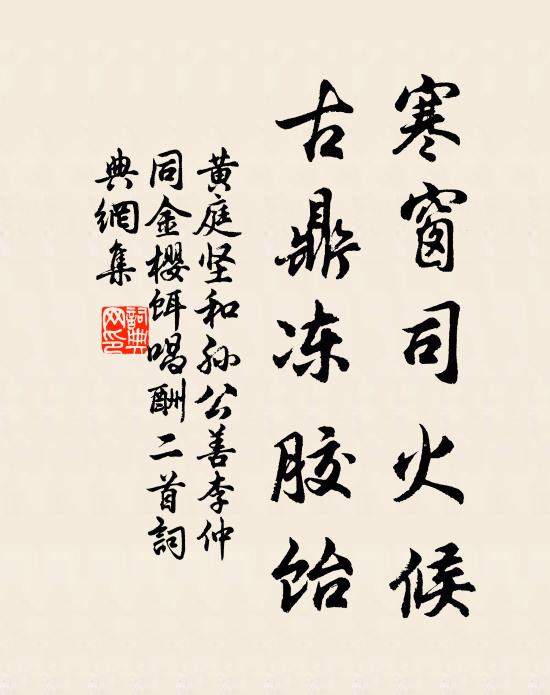 寒窗司火候
古鼎冻胶饴
黄庭坚和孙公善李仲
同金櫻饵唱酬二首詞
典網集
詞典
网印